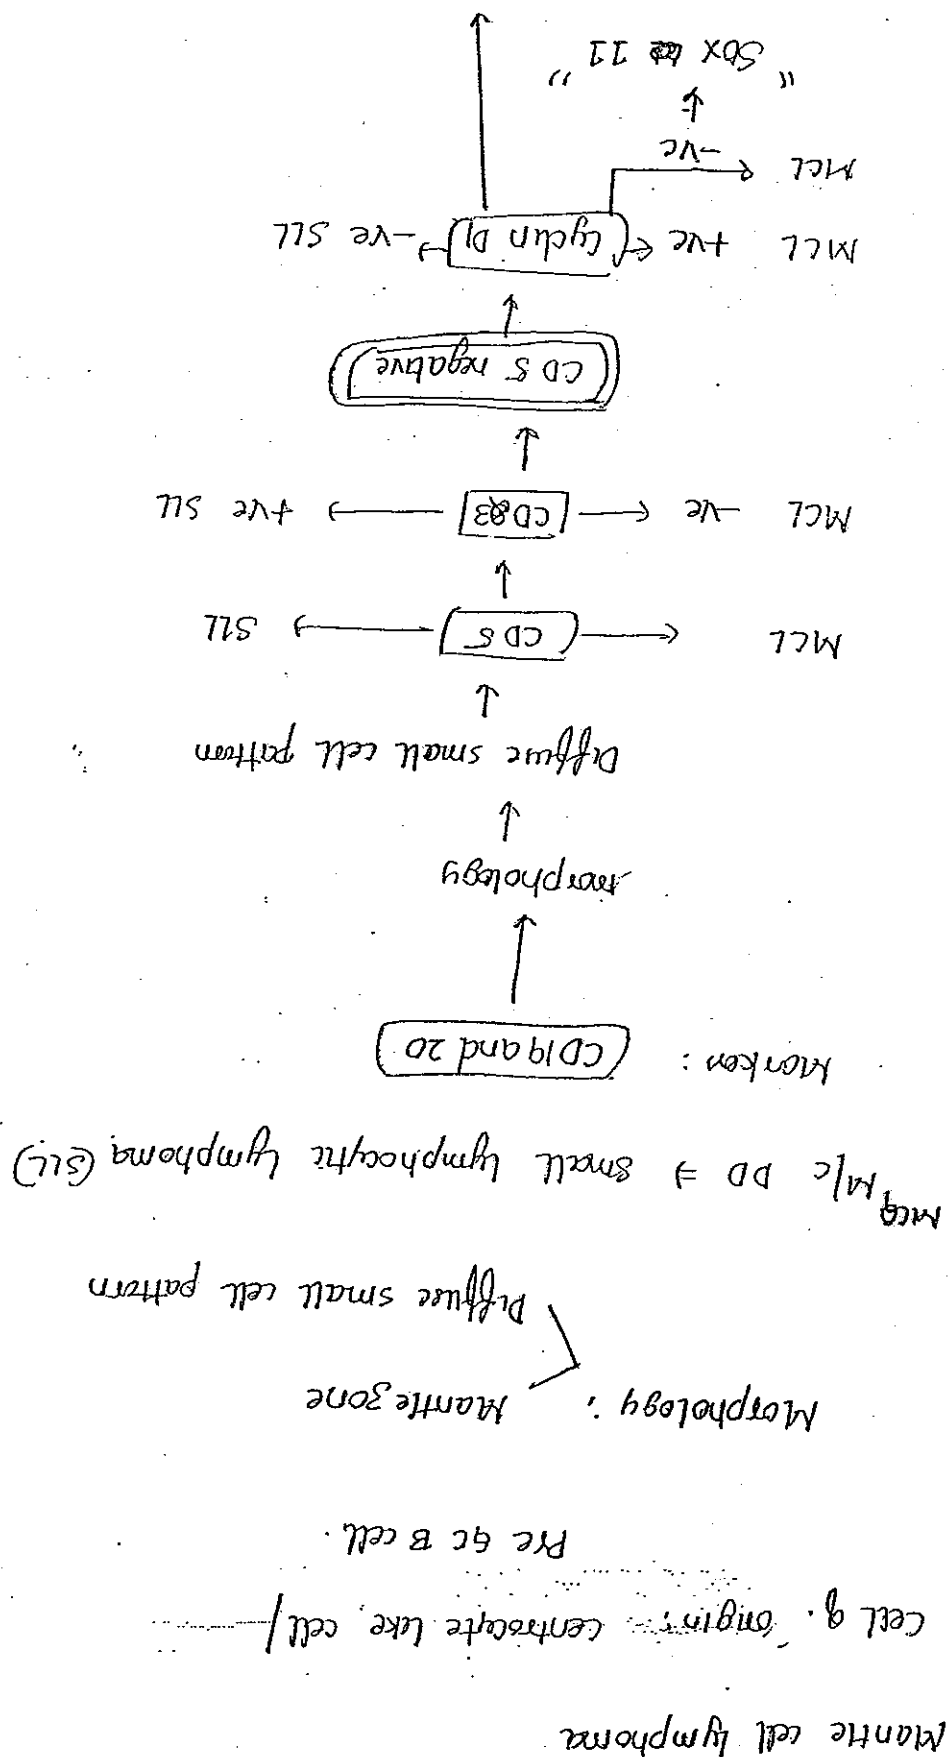 Mantle cell lymphoma
Cell of origin: centrocyte like cell/
Pre GC B cell.
Morphology: Mantle zone
Diffuse small cell pattern
MCQ M/C DD ⇒ Small lymphocytic lymphoma (SLL)
Marker: CD19 and 20
morphology
Diffuse small cell pattern
MCL ← CD 5 → SLL
MCL -ve ← CD23 → +ve SLL
CD 5 negative
MCL +ve ← Cyclin D1 → -ve SLL
MCL ← -ve
"Sox 11"